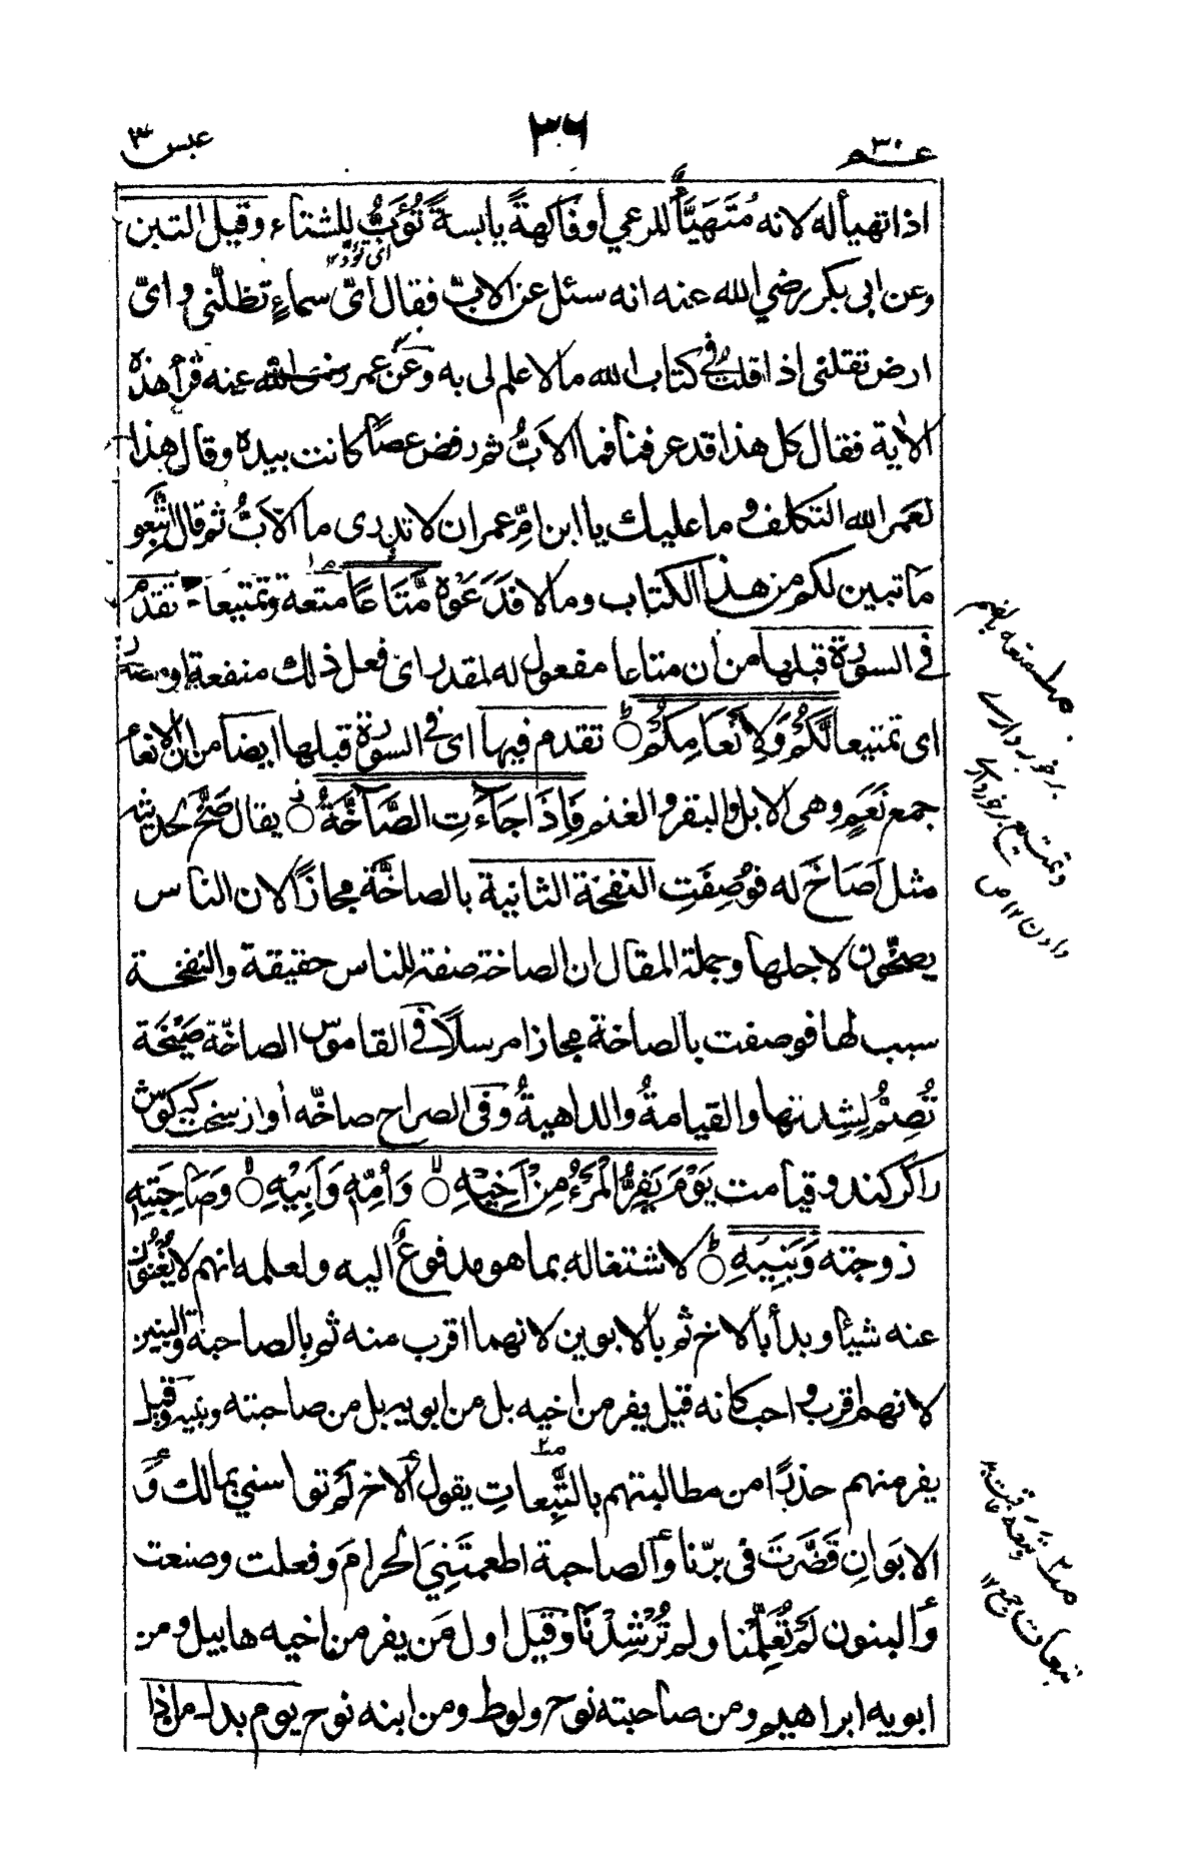 عم ٣٠
٣٦
عبس
اذا تهيأ له لانه مُتَهَيَّأٌ للرعي أو فاكهةً يابسةً تُؤَبُّ للشتاء وقيل التبن
وعن ابى بكر رضي الله عنه انه سئل عن الابّ فقال أىّ سماءٍ تظلّنى واىّ
ارض تقلنى اذا قلتُ في كتاب الله ما لا علم لى به وعن عمر رضى الله عنه قرأ هذه
الأية فقال كل هذا قد عرفنا فما الابُّ ثم رفض عصاً كانت بيده وقال هذا
لعمر الله التكلف وما عليك يا ابن امّ عمران لا تدرى ما الابُّ ثم قال اتَّبِعو
ما تبين لكم من هذا الكتاب وما لا فدَعَوْه مَّتَاعًا متعة وتمتيعا تقدم
في السورة قبلها من ان متاعا مفعول له لمقدر اى فعل ذلك منفعة او
اى تمتيعا لَّكُمْ وَلِأَنْعَامِكُمْ ۝ تقدم فيها اى فى السورة قبلها ايضا من ان الانعام
جمع نَعَمٍ وهى الابل والبقر والغنم فَإِذَا جَآءَتِ الصَّآخَّةُ ۝ يقال صَخَّ لحديثه
مثل اَصَاخَ له فوُصِفَتِ النفخة الثانية بالصاخَّة مجازًا لان الناس
يصخّون لاجلها وجملة المقال ان الصاخة صفة للناس حقيقة والنفخة
سبب لها فوصفت بالصاخة مجازا مرسلاً فى القاموس الصاخّة صَيْحَة
تُصِمُّ لِشِدتها والقيامةُ والداهيةُ وفى الصراح صاخّه أواز سخت كه كوش
راكر كند وقيامت يَوْمَ يَفِرُّ الْمَرْءُ مِنْ اَخِيْهِ ۝ وَاُمِّهٖ وَاَبِيْهِ ۝ وَصَاحِبَتِهٖ
زوجته وَبَنِيْهِ ۝ لاشتغاله بما هو مدفوعٌ اليه ولعلمه انهم لا يُغْنُوْنَ
عنه شيئا وبدأ بالاخ ثم بالابوين لانهما اقرب منه ثم بالصاحبة والبنين
لانهم اقرب واحب كانه قيل يفر من اخيه بل من ابويه بل من صاحبته وبنيه وقيل
يفر منهم حذرًا من مطالبتهم بالتَّبِعاتِ يقول الاخ لم تواسني بمالك و
الابوانِ قَصَّرتَ فى برّنا والصاحبة اطعمتَنِي الحرامَ وفعلت وصنعت
والبنون لم تُعَلِّمْنا ولم تُرْشِدْنَا وقيل اول مَن يفر من اخيه هابيل ومن
ابويه ابراهيم ومن صاحبته نوح ولوط ومن ابنه نوح يوم بدل من اذا
متعه بالضم
برخورداري
تبعات جمع ١٢